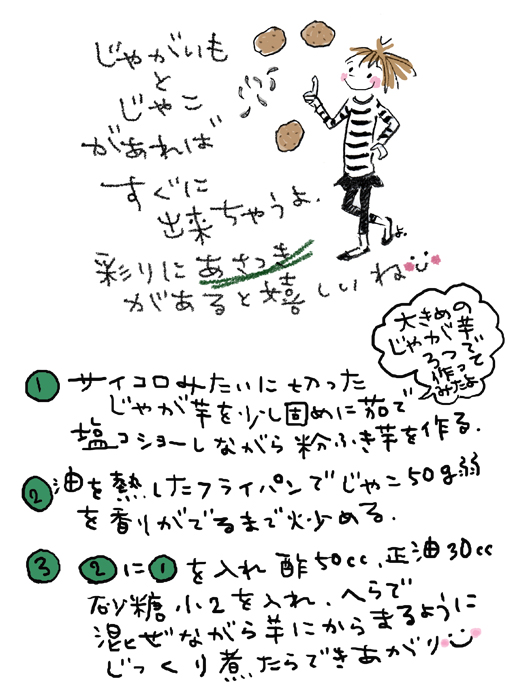 じゃがいも
と
じゃこ
があれば
すぐに
出来ちゃうよ.
彩りにあさつき
があると嬉しいね
大きめの
じゃが芋
3つで
作って
みたよ
① サイコロみたいに切った
じゃが芋を少し固めに茹で
塩コショーしながら粉ふき芋を作る.
② 油を熱したフライパンでじゃこ50g弱
を香りがでるまで炒める.
③ ②に①を入れ 酢50cc、正油30cc
砂糖小2を入れ、へらで
混ぜながら芋にからまるように
じっくり煮たらできあがり